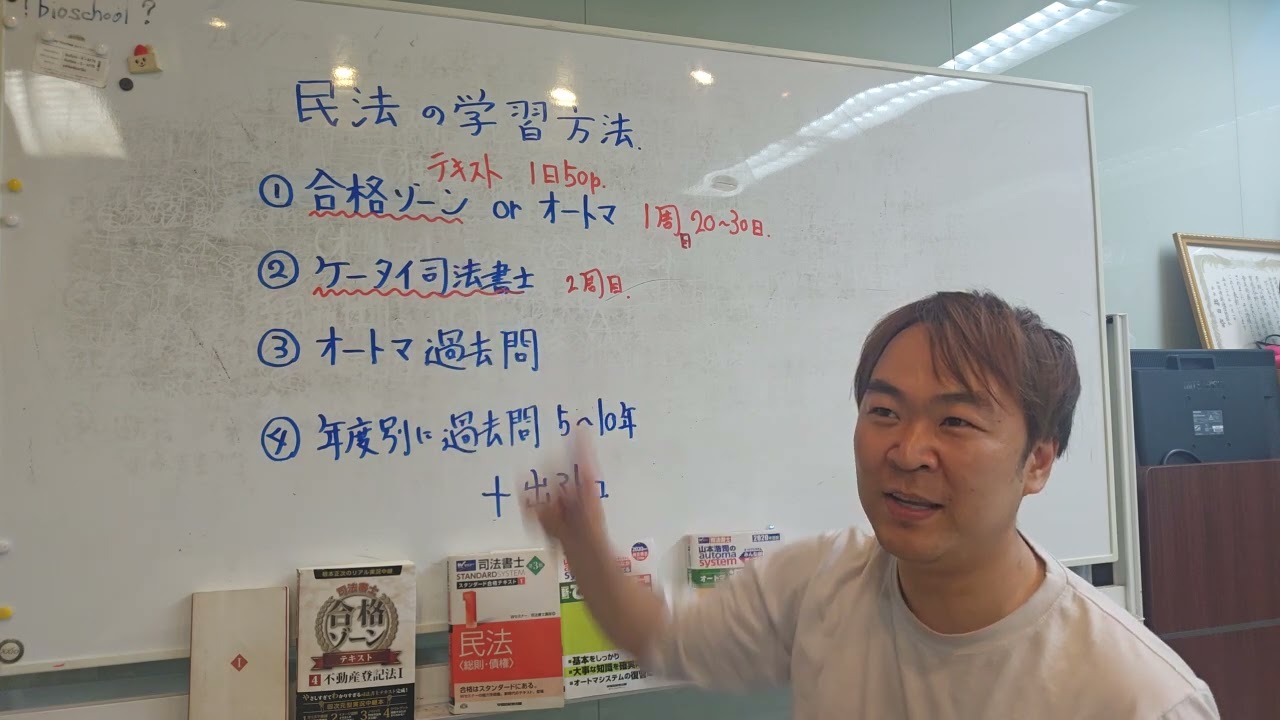 ! bioschool ?
民法の学習方法.
テキスト 1日50p.
① 合格ゾーン or オートマ 1周目 20~30日.
② ケータイ司法書士 2周目.
③ オートマ過去問
④ 年度別に過去問 5~10年
+ 出
1
司法書士
合格
ゾーン
テキスト
4 不動産登記法I
司法書士 第3版
STANDARDSYSTEM
スタンダード合格テキスト 1
1
民法
〈総則・債権〉
合格はスタンダードにある。
•基本をしっかり
•大事な知識を
•オートマシステムの復習
司法書士 2020年
山本浩司の
automa
system
オート